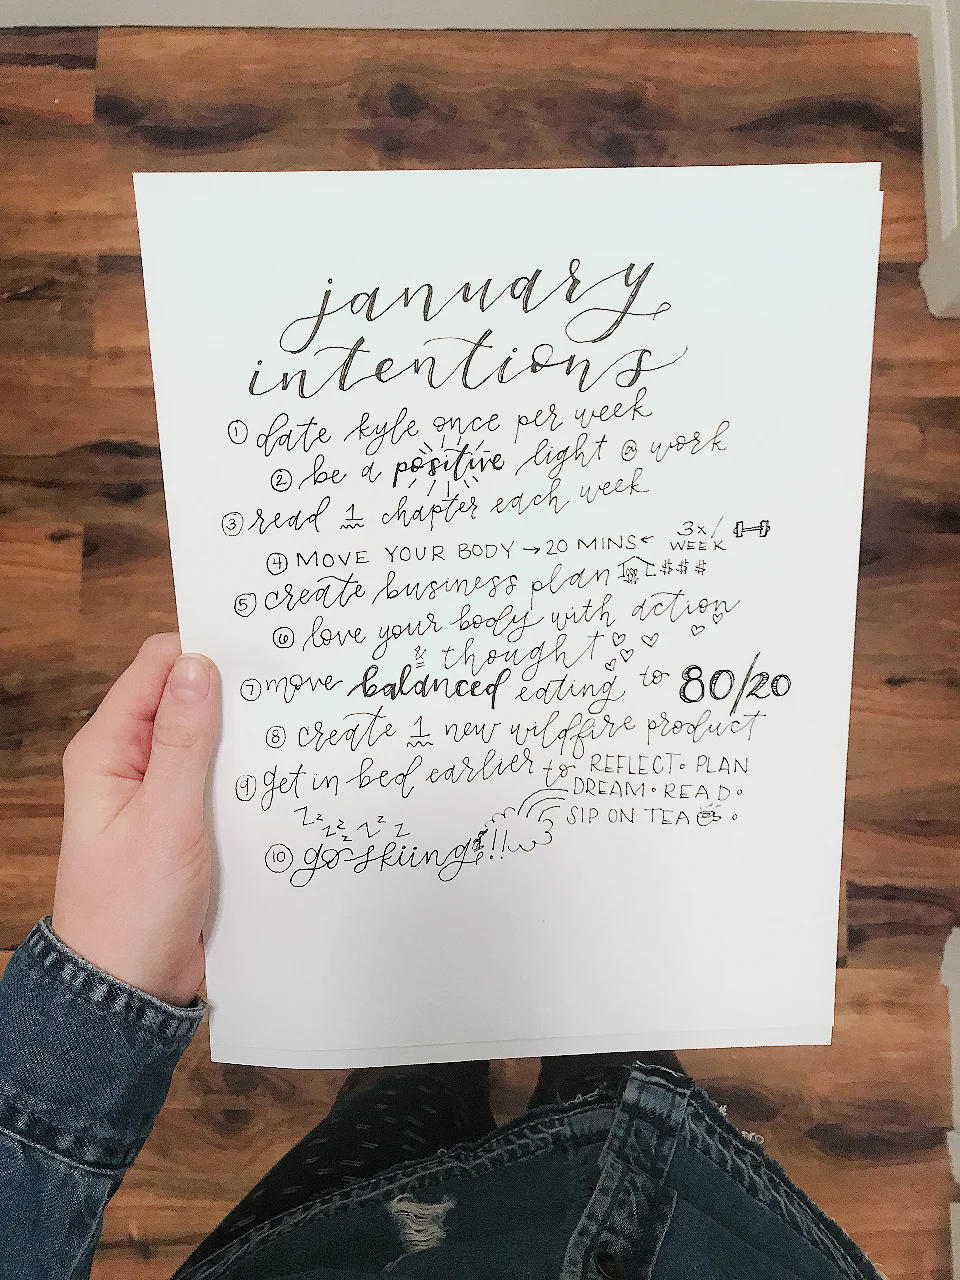 january
intentions
① date kyle once per week
② be a positive light @ work
③ read 1 chapter each week
④ MOVE YOUR BODY → 20 MINS ← 3x/ WEEK
⑤ create business plan $$$
⑥ love your body with action
& thought
⑦ move balanced eating to 80/20
⑧ create 1 new wildfire product
⑨ get in bed earlier to REFLECT • PLAN
DREAM • READ •
SIP ON TEA •
Zz zz zz z
⑩ go skiing!!!